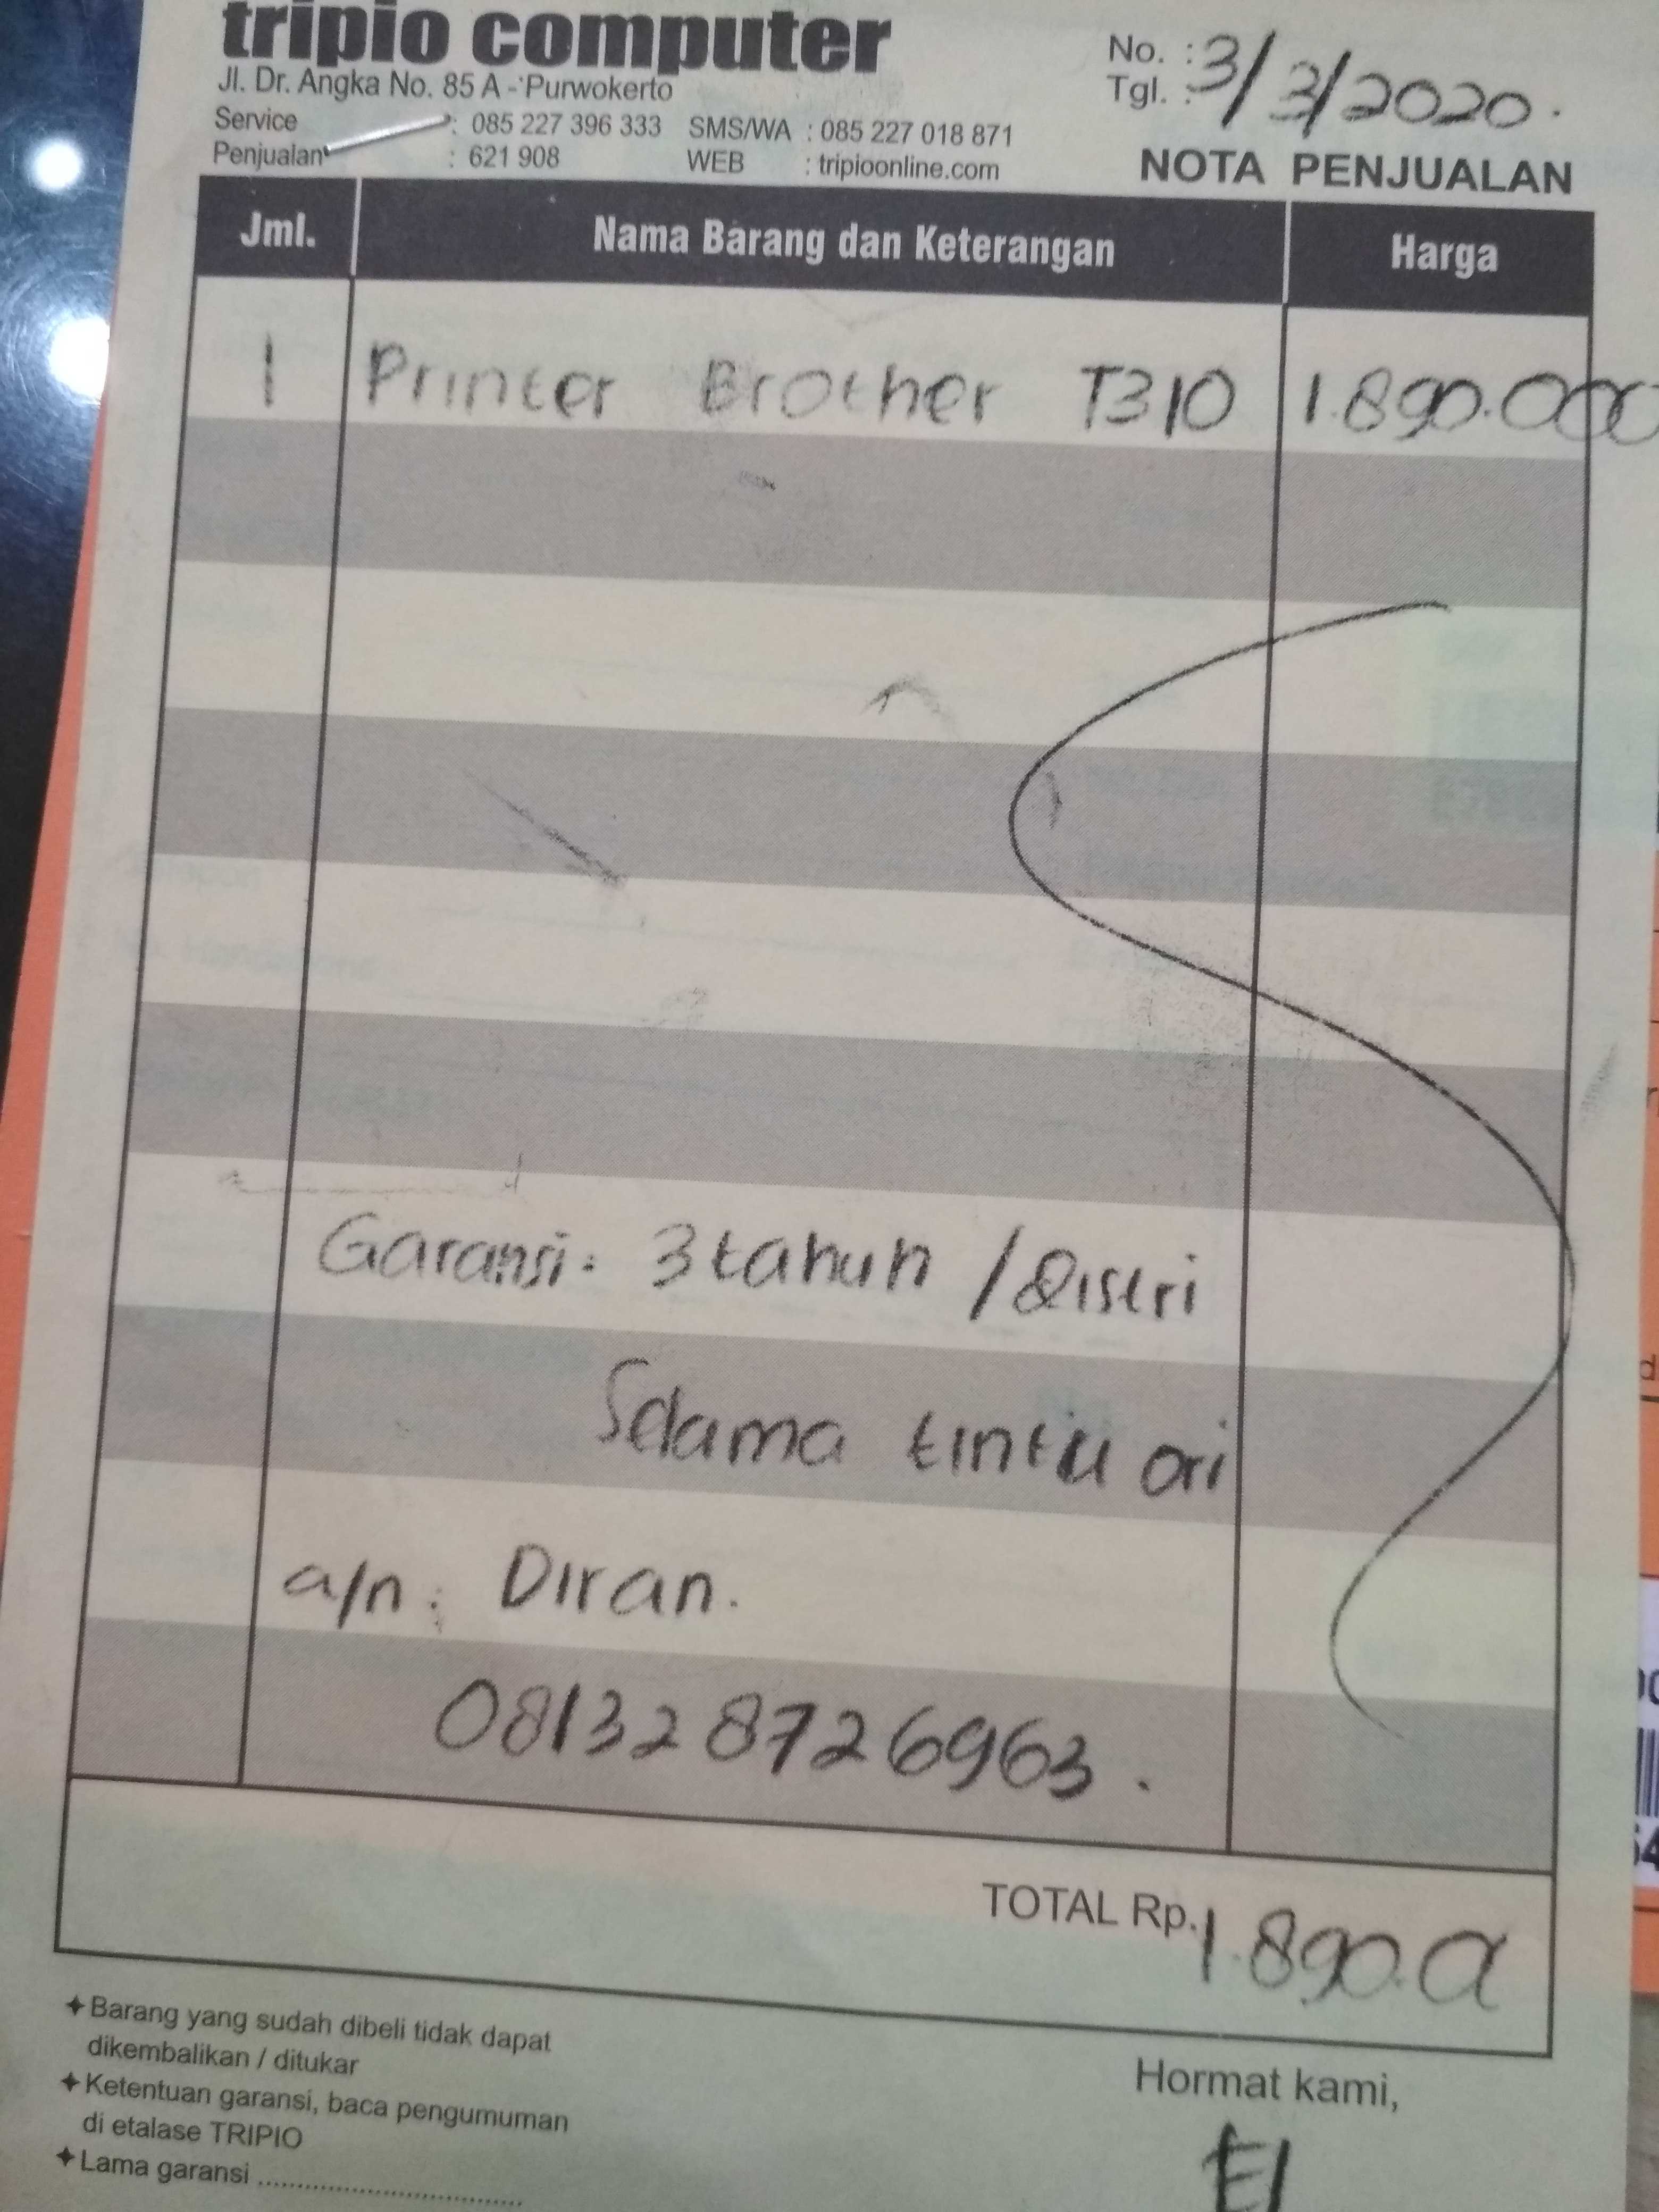 tripio computer
Jl. Dr. Angka No. 85 A - Purwokerto
Service : 085 227 396 333 SMS/WA : 085 227 018 871
Penjualan : 621 908 WEB : tripioonline.com
No. :
Tgl. : 3/3/2020.
NOTA PENJUALAN
Jml. Nama Barang dan Keterangan Harga
1 Printer Brother T310 1.890.000
Garansi : 3 tahun /
Selama ori
a/n : Diran.
081328726963.
TOTAL Rp. 1.890.
Barang yang sudah dibeli tidak dapat
dikembalikan / ditukar
Ketentuan garansi, baca pengumuman
di etalase TRIPIO
Lama garansi ........................................
Hormat kami,